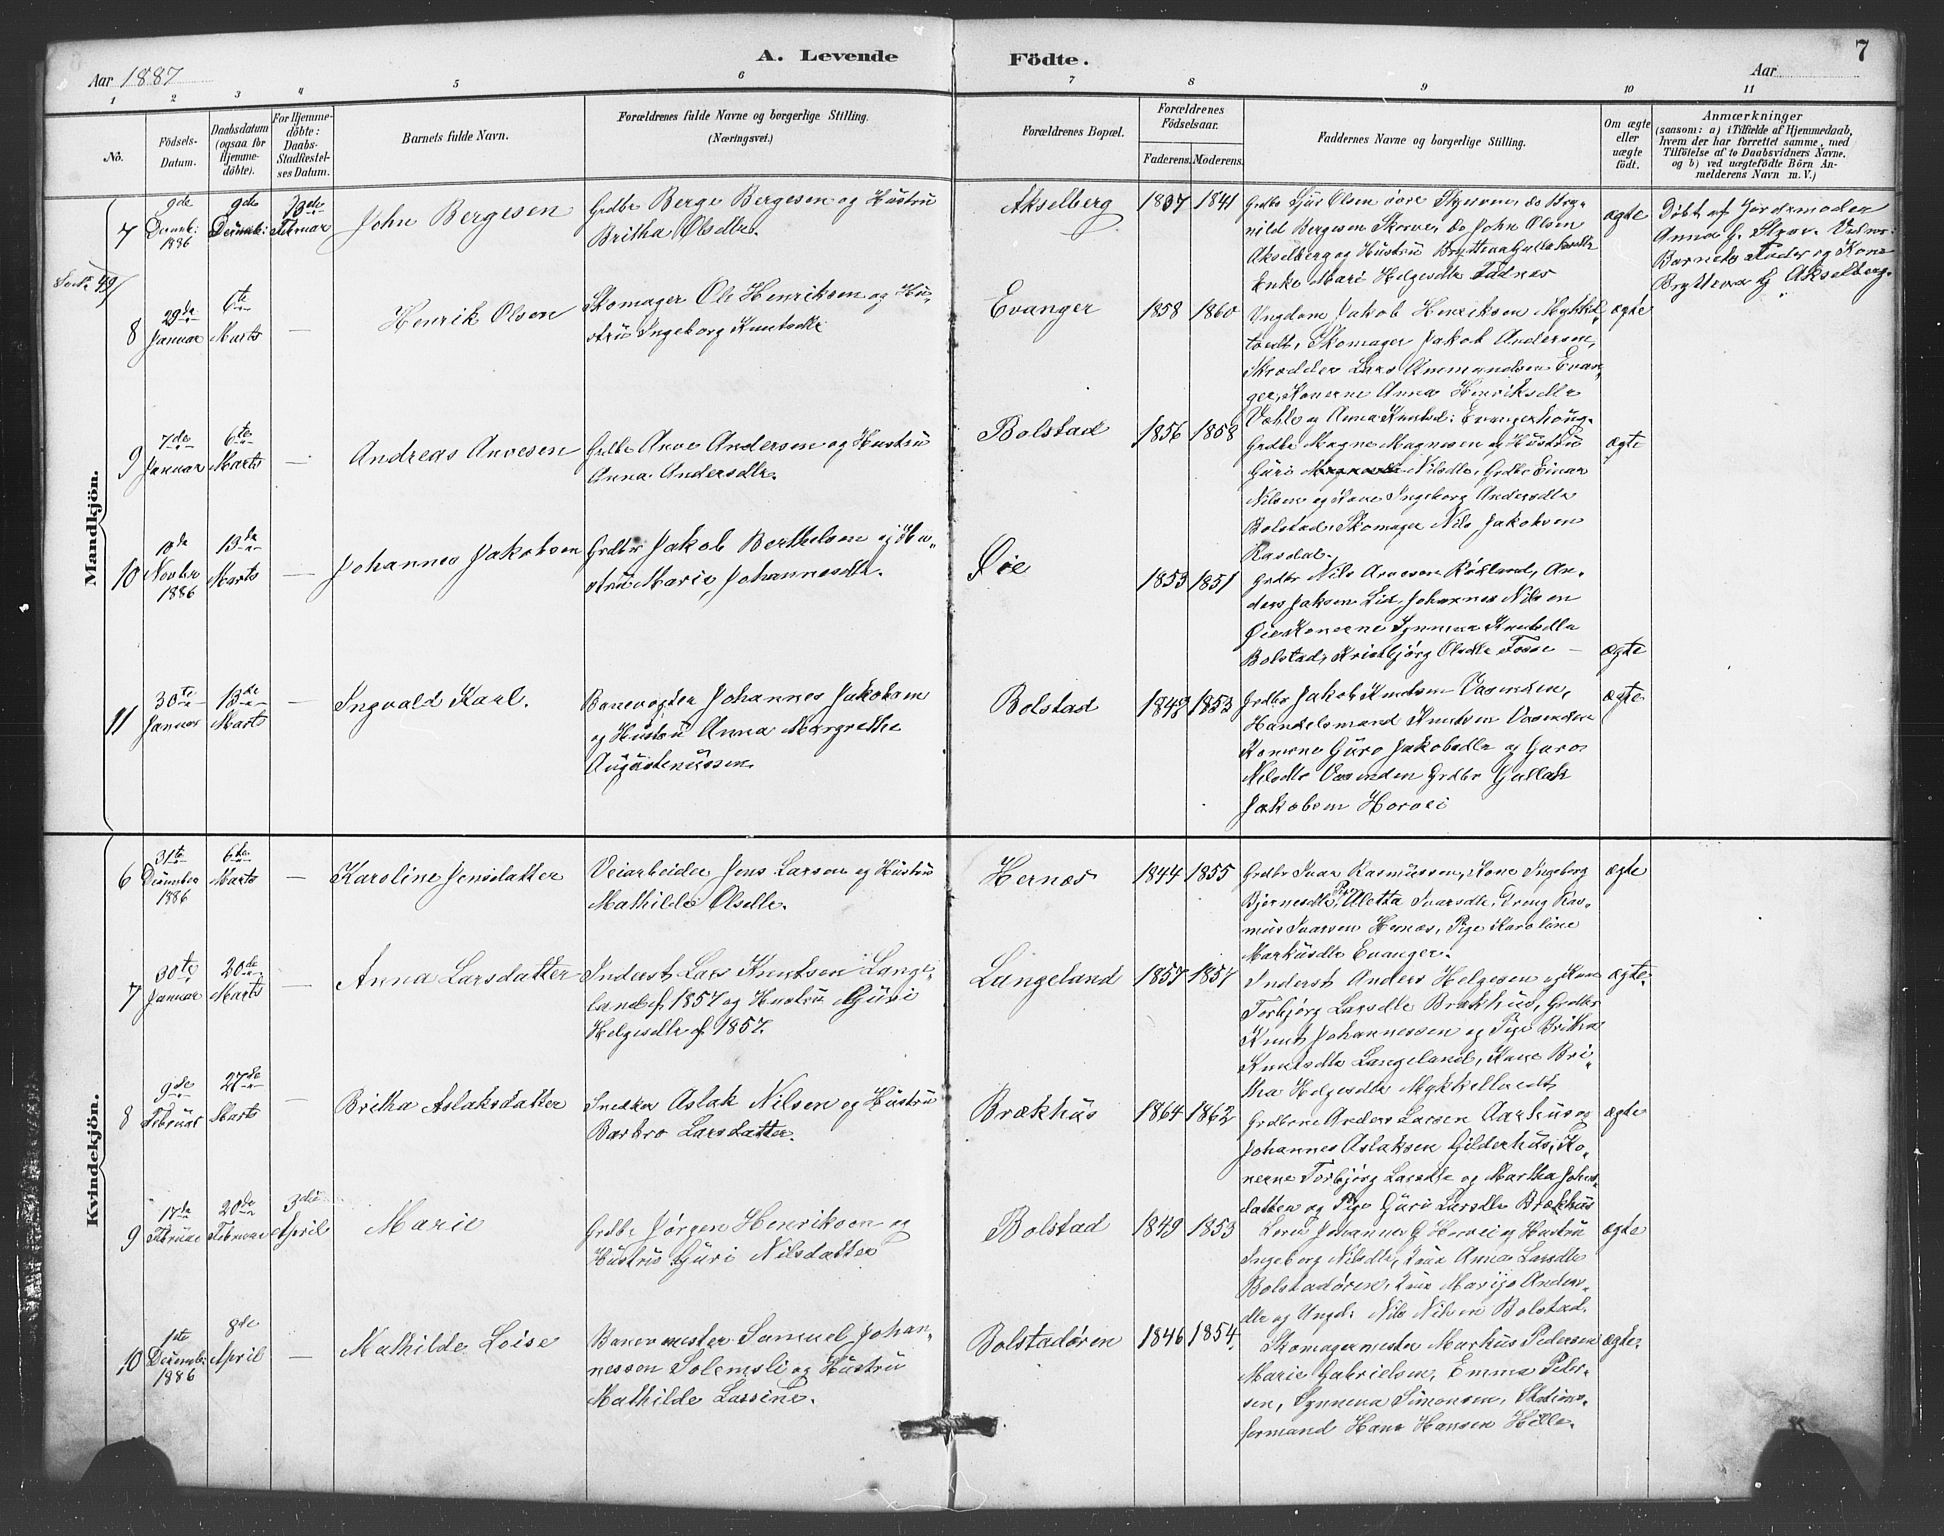 A. Levende Födte.
7
Aar 1887
Aar
1 2 3 4 5 6 7 8 9 10 11
No.
Födsels-Datum.
Daabsdatum (ogsaa for Hjemme-döbte).
For Hjemme-döbte: Daabs-Stadfæstel-ses Datum.
Barnets fulde Navn.
Forældrenes fulde Navne og borgerlige Stilling.
(Næringsvei.)
Forældrenes Bopæl.
Forældrenes Födselsaar.
Faderens. Moderens.
Faddernes Navne og borgerlige Stilling.
Om ægte eller uægte födt.
Anmærkninger
(saasom: a) i Tilfælde af Hjemmedaab,
hvem der har forrettet samme, med
Tilföielse af to Daabsvidners Navne.
og b) ved uægtefödte Börn An-
melderens Navn m. V.)
Mandkjön.
7
9de Decemb: 1886
9de Decemb:
13de Februar
John Bergesen
Grdbr Berge Bergesen og Hustru
Britha Olsdtr.
Akselberg
1837 1841
Grdbr Sjur Olsen övre Skjerven, do Bry-
nild Bergesen Skorve, do John Olsen
Akselberg og Hustru Brytteva Gullaksdtr
Enke Mari Helgesdtr Fadnes
ægte
Döbt af Jordemoder
Anna G. Skorv. Vidner:
Barnets Fader og Kone
Brytteva G. Akselberg.
8
29de Januar
6te Marts
—
Henrik Olsen
Skomager Ole Henriksen og Hu-
stru Ingeborg Knutsdtr
Evanger
1858 1860
Ungdom Jakob Henriksen Mykkel-
tvedt, Skomager Jakob Andersen,
Skrædder Lars Ammundsen Evan-
ger, Konerne Anna Henriksdtr
Væhle og Anna Knutsd: Evangerhoug.
ægte
9
7de Januar
6te Marts
—
Andreas Arvesen
Grdbr Arve Andersen og Hustru
Anna Andersdtr.
Bolstad
1856 1858
Grdbr Magne Magnesen og Hustru
Guri Nilsdtr, Grdbr Einar
Nilsen og Kone Ingeborg Andersdtr
Bolstad, Skomager Nils Jakobsen
Rasdal.
ægte
10
18de Novbr 1886
13de Marts
—
Johannes Jakobsen
Grdbr Jakob Berthelsen og Hu-
stru Marie Johannesdtr.
Øie
1853 1851
Grdbr Nils Arvesen Röxland, An-
ders Jaksen Lid, Johannes Nilsen
Øie, Konerne Synneva Knutsdtr
Bolstad, Kristbjørg Olsdtr Fosse —
ægte
11
30te Januar
13de Marts
—
Ingvald Karl.
Banevogter Johannes Jakobsen
og Hustru Anna Margrethe
Augustenussen.
Bolstad
1848 1853
Grdbr Jakob Knutsen Vasenden,
Handelsmand Knutsen Vasenden
Konerne Guro Jakobsdtr og Guro
Nilsdtr Vasenden Grdbr Gullak
Jakobsen Horvei
ægte
Kvindekjön.
6
31te December 1886
6te Marts
—
Karoline Jensdatter
Veiarbeider Jens Larsen og Hustru
Mathilde Olsdtr.
Hernes
1844 1855
Grdbr Ivar Rasmussen, Kone Ingeborg
Bjørnesdtr, Pige Aletta Ivarsdtr, Dreng Ras-
mus Ivarsen Hernes, Pige Karoline
Markusdtr Evanger.
ægte
7
30te Januar
20de Marts
—
Anna Larsdatter
Inderst Lars Knutsen Lange-
land f. 1857 og Hustru Guri
Helgesdtr f. 1857.
Langeland
1857 1857
Inderst Anders Helgesen og Kone
Torbjørg Larsdtr Brækhus, Grdbr
Knut Johannessen og Pige Britha
Knutsdtr Langeland, Kone Bri-
tha Helgesdtr Mykkeltvedt
ægte
8
9de Februar
27de Marts
—
Britha Aslaksdatter
Snedker Aslak Nilsen og Hustru
Barbro Larsdatter.
Brækhus
1864 1862
Grdbrne Anders Larsen Aarhus og
Johannes Aslaksen Gilderhus, Ko-
nerne Torbjørg Larsdtr og Martha Johns-
datter og Pige Guri Larsdtr Brækhus
ægte
9
17de Februar
20de Februar
3die April
Marie
Grdbr Jørgen Henriksen og
Hustru Guri Nilsdatter
Bolstad
1849 1853
Johannes G. Horvei og Hustru
Ingeborg Nilsdtr, Anna Larsdtr
Bolstadøren, Marijo Anders-
dtr og Ungd: Nils Nilsen Bolstad.
ægte
10
1ste Decemb: 1886
8de April
—
Mathilde Loise
Banevomester Samuel Johan-
nessen Solemsli og Hustru
Mathilde Larsine.
Bolstadøren
1846 1854.
Skomagermester Markus Pedersen
Marie Gabrielsen, Emma Peder-
sen, Synneva Simonsen, Stations-
formand Hans Hansen Helle.
ægte